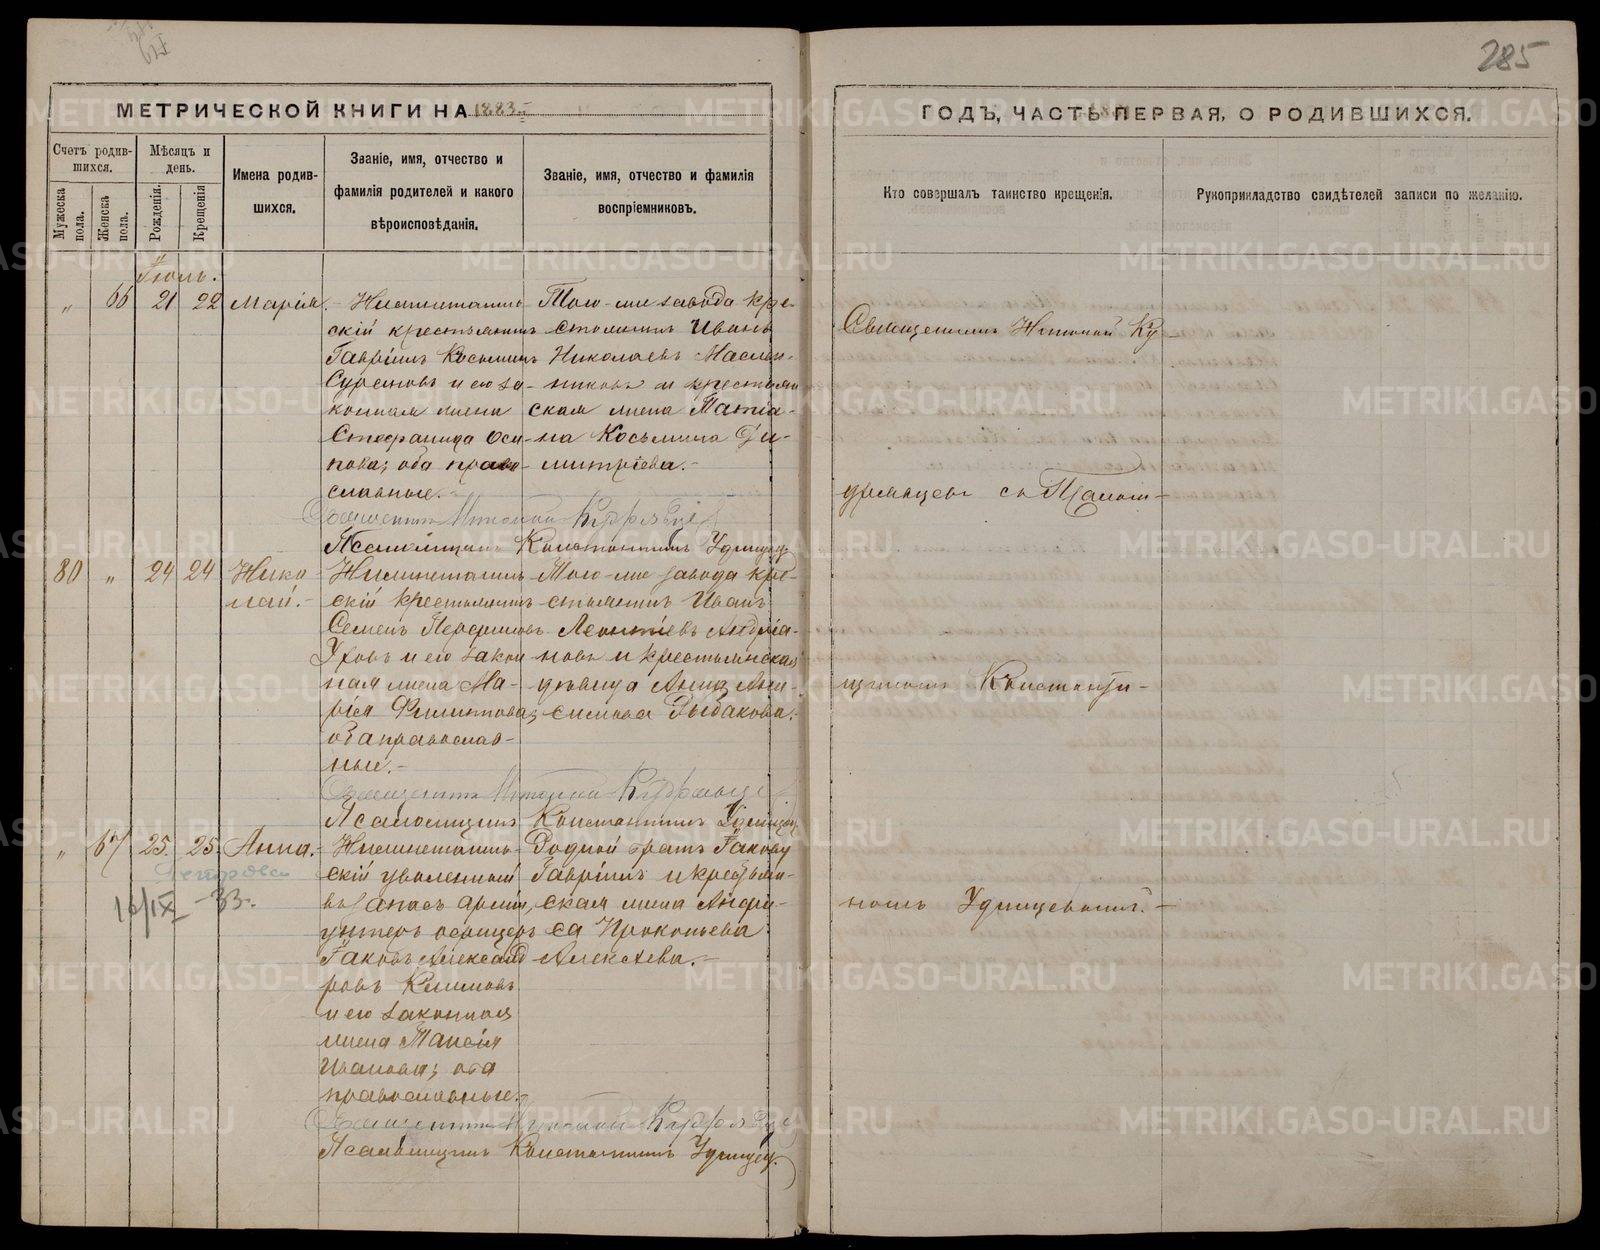 285
МЕТРИЧЕСКОЙ КНИГИ НА 1883
ГОДЪ, ЧАСТЬ ПЕРВАЯ, О РОДИВШИХСЯ.
Счетъ родив-
шихся.
Мужеска пола.
Женска пола.
Мѣсяцъ и
день.
Рожденія.
Крещенія
Имена родив-
шихся.
Званіе, имя, отчество и
фамилія родителей и какого
вѣроисповѣданія.
Званіе, имя, отчество и фамилія
воспріемниковъ.
Кто совершалъ таинство крещенія.
Рукоприкладство свидѣтелей записи по желанію.
Іюль.
„ 66 21 22 Марія.
Нижнетагиль-
скій крестьянинъ
Гавріилъ Косьминъ
и его за-
конная жена
Стефанида Оси-
пова; оба право-
славные.
Того-же завода кре-
стьянинъ Иванъ
Николаевъ Маслен-
никовъ и крестьян
ская жена Татіа-
на Косьмина Ди-
митріева.
Священникъ
Псаломщикъ Константинъ Удинцев
80 „ 24 24 Нико
лай.
Нижнетагиль-
скій крестьянинъ
Семенъ
и его закон
ная жена Ма-
рія Филиппова;
оба православ-
ные.
Того-же завода кре-
стьянинъ Иванъ
Леонтіевъ Андріа-
новъ и крестьянская
дѣвица Анна Ани-
симова Рыбакова.
Священникъ
Псаломщикъ Константинъ Удинцев
„ 67 25. 25. Анна.
16/IX - 33.
Нижнетагиль-
скій уволенный
въ запасъ арміи,
унтеръ офицеръ
Іаковъ Александ
ровъ Климовъ
и его законная
жена Таисія
Иванова; оба
православные.
Родной братъ Іакову
Гавріилъ и крестьян-
ская жена Анфи-
са Прокопьева
Алексѣева.
Священникъ
Псаломщикъ Константинъ Удинцев
Священникъ
съ Псалом-
щикомъ Константи-
номъ Удинцевымъ.
METRIKI.GASO-URAL.RU